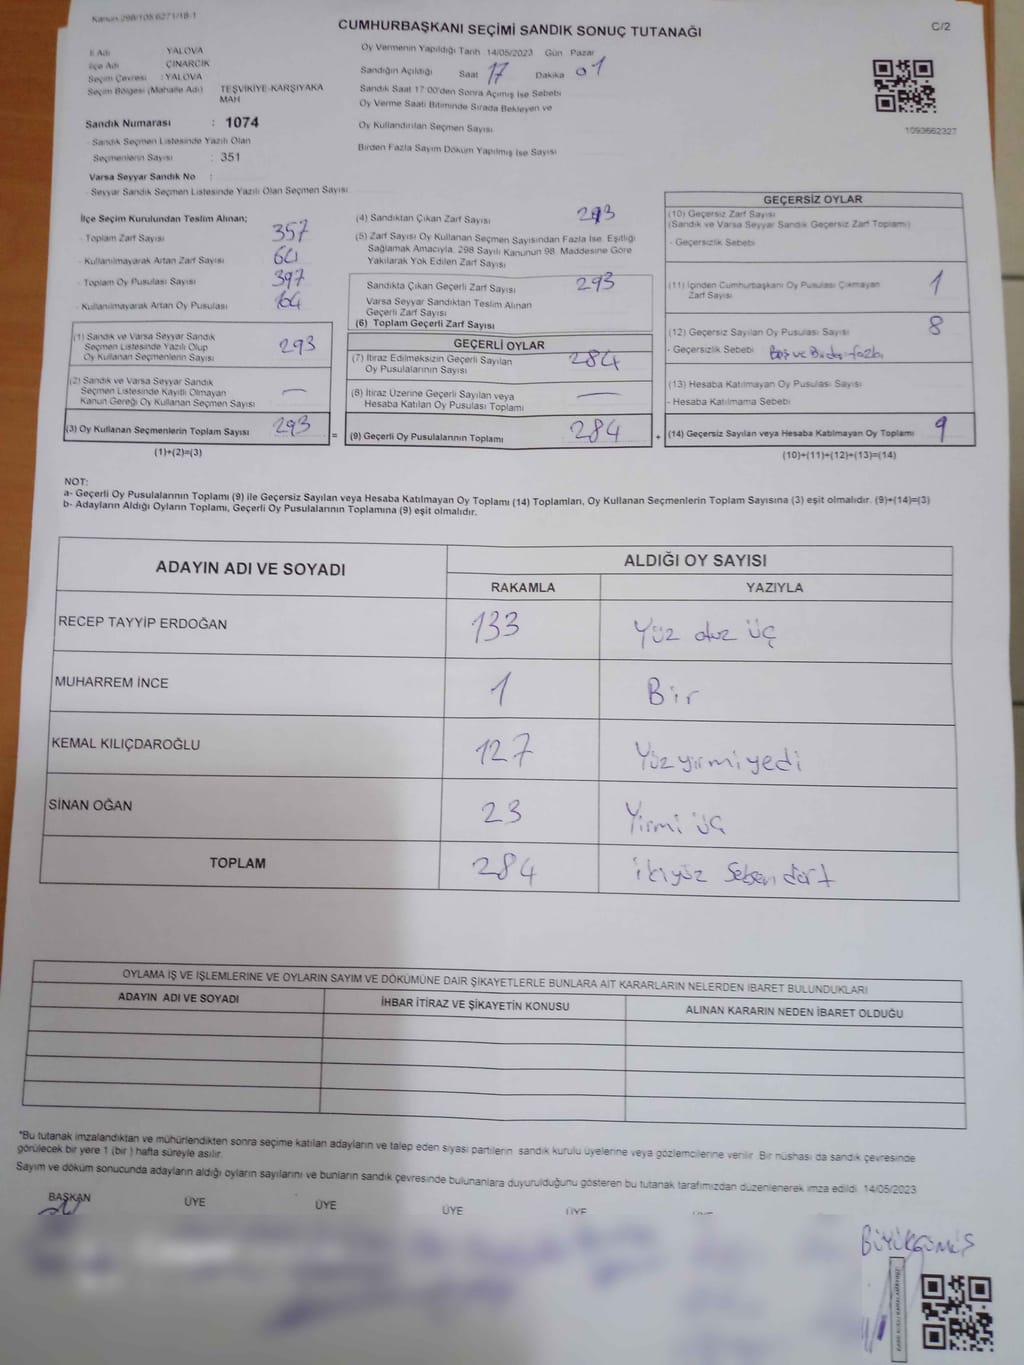 Kanun 298/105 6271/18-1
CUMHURBAŞKANI SEÇİMİ SANDIK SONUÇ TUTANAĞI
C/2
İl Adı YALOVA
İlçe Adı ÇINARCIK
Seçim Çevresi : YALOVA
Seçim Bölgesi (Mahalle Adı) TEŞVİKİYE-KARŞIYAKA MAH
Sandık Numarası : 1074
- Sandık Seçmen Listesinde Yazılı Olan
Seçmenlerin Sayısı : 351
Varsa Seyyar Sandık No :
- Seyyar Sandık Seçmen Listesinde Yazılı Olan Seçmen Sayısı
Oy Vermenin Yapıldığı Tarih 14/05/2023 Gün Pazar
Sandığın Açıldığı Saat 17 Dakika 01
Sandık Saat 17 00'den Sonra Açımış İse Sebebi
Oy Verme Saati Bitiminde Sırada Bekleyen ve
Oy Kullandırılan Seçmen Sayısı
Birden Fazla Sayım Döküm Yapılmış İse Sayısı
1093662327
İlçe Seçim Kurulundan Teslim Alınan;
- Toplam Zarf Sayısı 357
- Kullanılmayarak Artan Zarf Sayısı 64
- Toplam Oy Pusulası Sayısı 397
- Kullanılmayarak Artan Oy Pusulası
(1) Sandık ve Varsa Seyyar Sandık
Seçmen Listesinde Yazılı Olup
Oy Kullanan Seçmenlerin Sayısı 293
(2) Sandık ve Varsa Seyyar Sandık
Seçmen Listesinde Kayıtlı Olmayan
Kanun Gereği Oy Kullanan Seçmen Sayısı —
(3) Oy Kullanan Seçmenlerin Toplam Sayısı 293 =
(1)+(2)=(3)
(4) Sandıktan Çıkan Zarf Sayısı 293
(5) Zarf Sayısı Oy Kullanan Seçmen Sayısından Fazla İse, Eşitliği
Sağlamak Amacıyla, 298 Sayılı Kanunun 98. Maddesine Göre
Yakılarak Yok Edilen Zarf Sayısı
Sandıkta Çıkan Geçerli Zarf Sayısı 293
Varsa Seyyar Sandıktan Teslim Alınan
Geçerli Zarf Sayısı
(6) Toplam Geçerli Zarf Sayısı
GEÇERLİ OYLAR
(7) İtiraz Edilmeksizin Geçerli Sayılan
Oy Pusulalarının Sayısı 284
(8) İtiraz Üzerine Geçerli Sayılan veya
Hesaba Katılan Oy Pusulası Toplamı —
(9) Geçerli Oy Pusulalarının Toplamı 284 +
GEÇERSİZ OYLAR
(10) Geçersiz Zarf Sayısı
(Sandık ve Varsa Seyyar Sandık Geçersiz Zarf Toplamı)
- Geçersizlik Sebebi
(11) İçinden Cumhurbaşkanı Oy Pusulası Çıkmayan
Zarf Sayısı 1
(12) Geçersiz Sayılan Oy Pusulası Sayısı 8
- Geçersizlik Sebebi Boş ve Birden fazla
(13) Hesaba Katılmayan Oy Pusulası Sayısı
- Hesaba Katılmama Sebebi
(14) Geçersiz Sayılan veya Hesaba Katılmayan Oy Toplamı 9
(10)+(11)+(12)+(13)=(14)
NOT:
a- Geçerli Oy Pusulalarının Toplamı (9) ile Geçersiz Sayılan veya Hesaba Katılmayan Oy Toplamı (14) Toplamları, Oy Kullanan Seçmenlerin Toplam Sayısına (3) eşit olmalıdır. (9)+(14)=(3)
b- Adayların Aldığı Oyların Toplamı, Geçerli Oy Pusulalarının Toplamına (9) eşit olmalıdır.
ADAYIN ADI VE SOYADI
ALDIĞI OY SAYISI
RAKAMLA YAZIYLA
RECEP TAYYİP ERDOĞAN 133 Yüz otuz üç
MUHARREM İNCE 1 Bir
KEMAL KILIÇDAROĞLU 127 Yüz yirmi yedi
SİNAN OĞAN 23 Yirmi üç
TOPLAM 284 ikiyüz seksen dört
OYLAMA İŞ VE İŞLEMLERİNE VE OYLARIN SAYIM VE DÖKÜMÜNE DAİR ŞİKAYETLERLE BUNLARA AİT KARARLARIN NELERDEN İBARET BULUNDUKLARI
ADAYIN ADI VE SOYADI İHBAR İTİRAZ VE ŞİKAYETİN KONUSU ALINAN KARARIN NEDEN İBARET OLDUĞU
*Bu tutanak imzalandıktan ve mühürlendikten sonra seçime katılan adayların ve talep eden siyasi partilerin sandık kurulu üyelerine veya gözlemcilerine verilir. Bir nüshası da sandık çevresinde
görülecek bir yere 1 (bir ) hafta süreyle asılır.
Sayım ve döküm sonucunda adayların aldığı oyların sayılarını ve bunların sandık çevresinde bulunanlara duyurulduğunu gösteren bu tutanak tarafımızdan düzenlenerek imza edildi 14/05/2023
BAŞKAN ÜYE ÜYE ÜYE ÜYE
BÜYÜKGÜMÜŞ